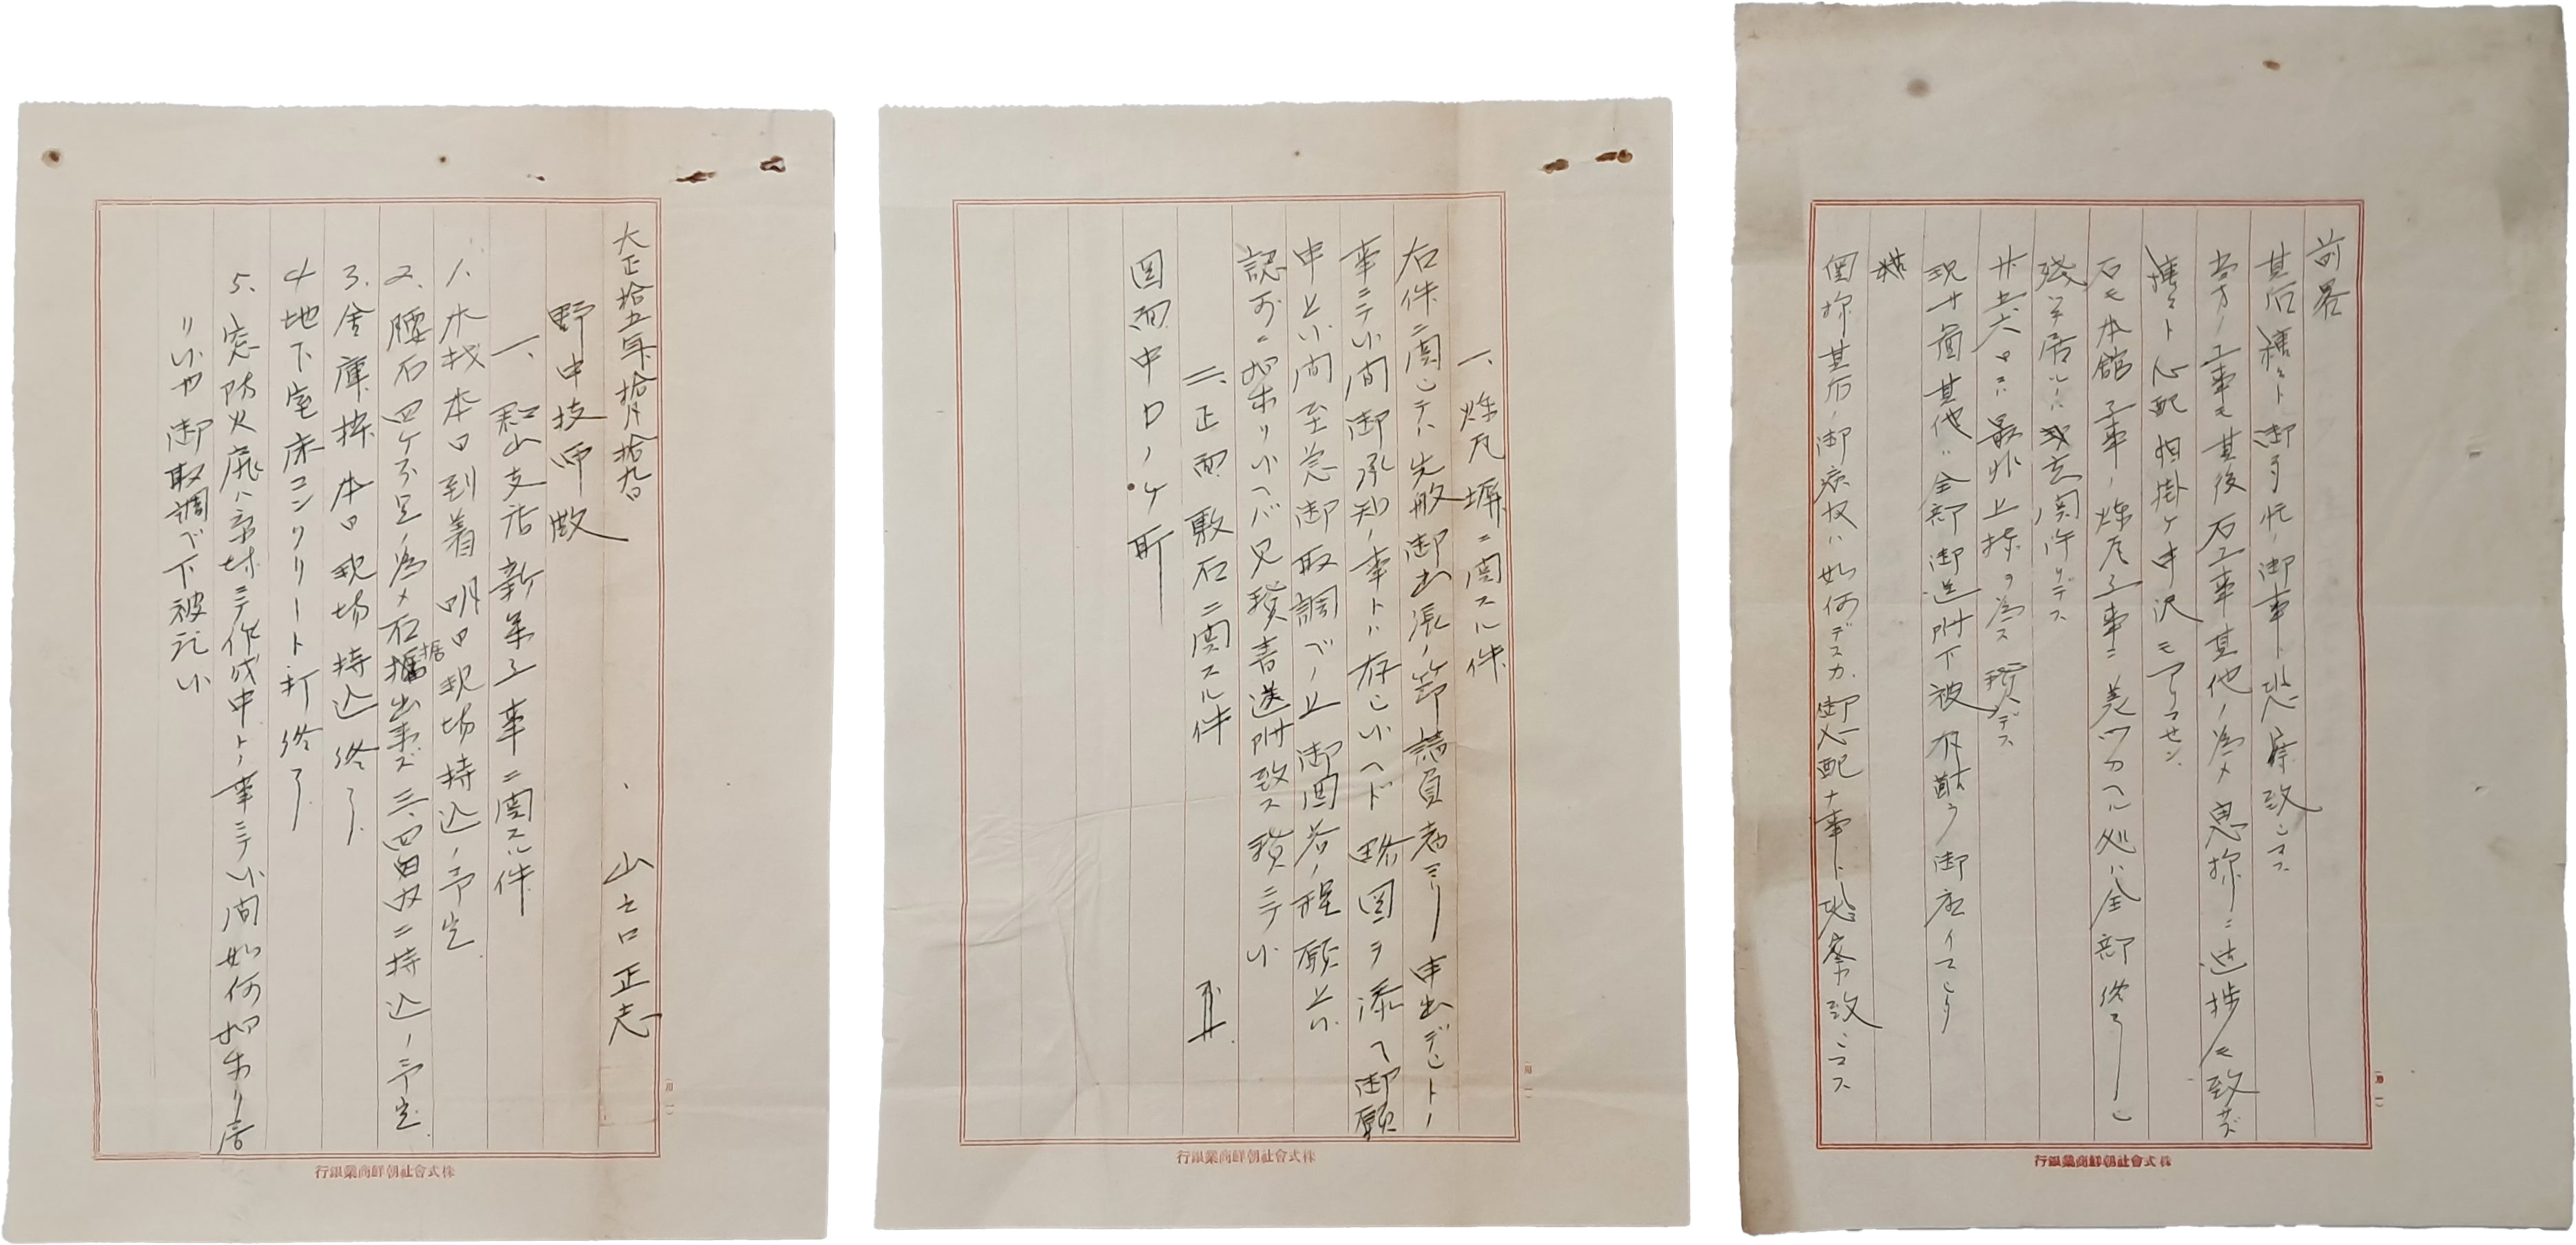 大正拾五年拾月拾九日　山口正志
野中技師殿
一、釜山支店新築工事ニ関スル件
1、木材本日到着明日現場持込ノ予定
2、腰石四ケ不足ノ為メ石据出来ズ三、四日内ニ持込ノ予定
3、金庫扉本日現場持込終了
4、地下室床コンクリート打終了
5、窓防火扉ハ京城ニテ作成中トノ事ニテ小間如何相成リ居
リ小也御取調ベ下被訖小
株式會社朝鮮商業銀行
一、煉瓦塀ニ関スル件
右件ニ関シテハ先般御出張ノ節請負者ヨリ申出デシトノ
事ニテ小間御承知ノ事トハ存じ小ヘド略図ヲ添ヘ御願
申上小間至急御取調ベノ上御回答ノ程願上小
認可ニ相成リ小ヘバ見積書送附致ス積ニテ小
二、正面敷石ニ関スル件
図面中ロノケ所
株式會社朝鮮商業銀行
前略
其后種々ト御多忙ノ御事ト恐察致シマス
当方ノ工事モ其後石工事其他ノ為メ思様ニ進捗モ致サズ
種々ト心配相掛ケ申訳モアリマセン
石モ本館工事ノ煉瓦工事ニ差ツカヘル処ハ全部終了シ
残リ居ルハ玄関許リデス
廿五六日ニハ最早上棟ヲ為ス積デス
現寸図其他ハ全部御送附下被有難ウ御座イマシタ
奥様其后ノ御病状ハ如何デスカ御心配ナ事ト恐察致シマス
株式會社朝鮮商業銀行